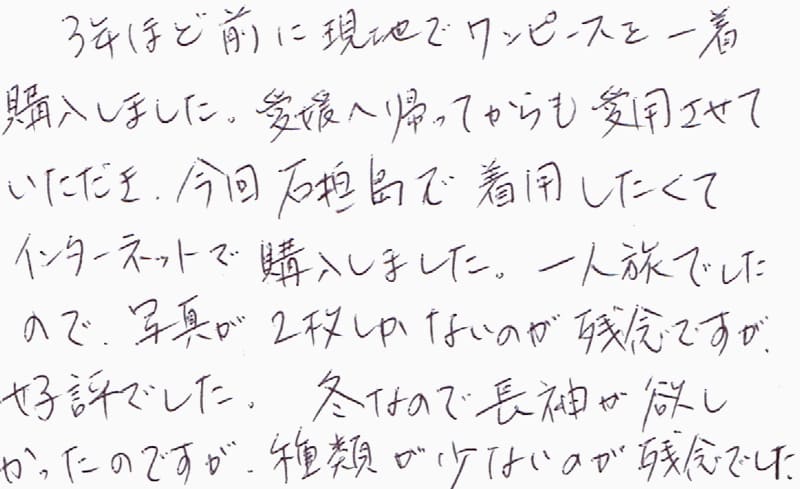 3年ほど前に現地でワンピースを一着
購入しました。愛媛へ帰ってからも愛用させて
いただき、今回石垣島で着用したくて
インターネットで購入しました。一人旅でした
ので、写真が2枚しかないのが残念ですが、
好評でした。 冬なので長神が欲し
かったのですが、種類が少ないのが残念でした